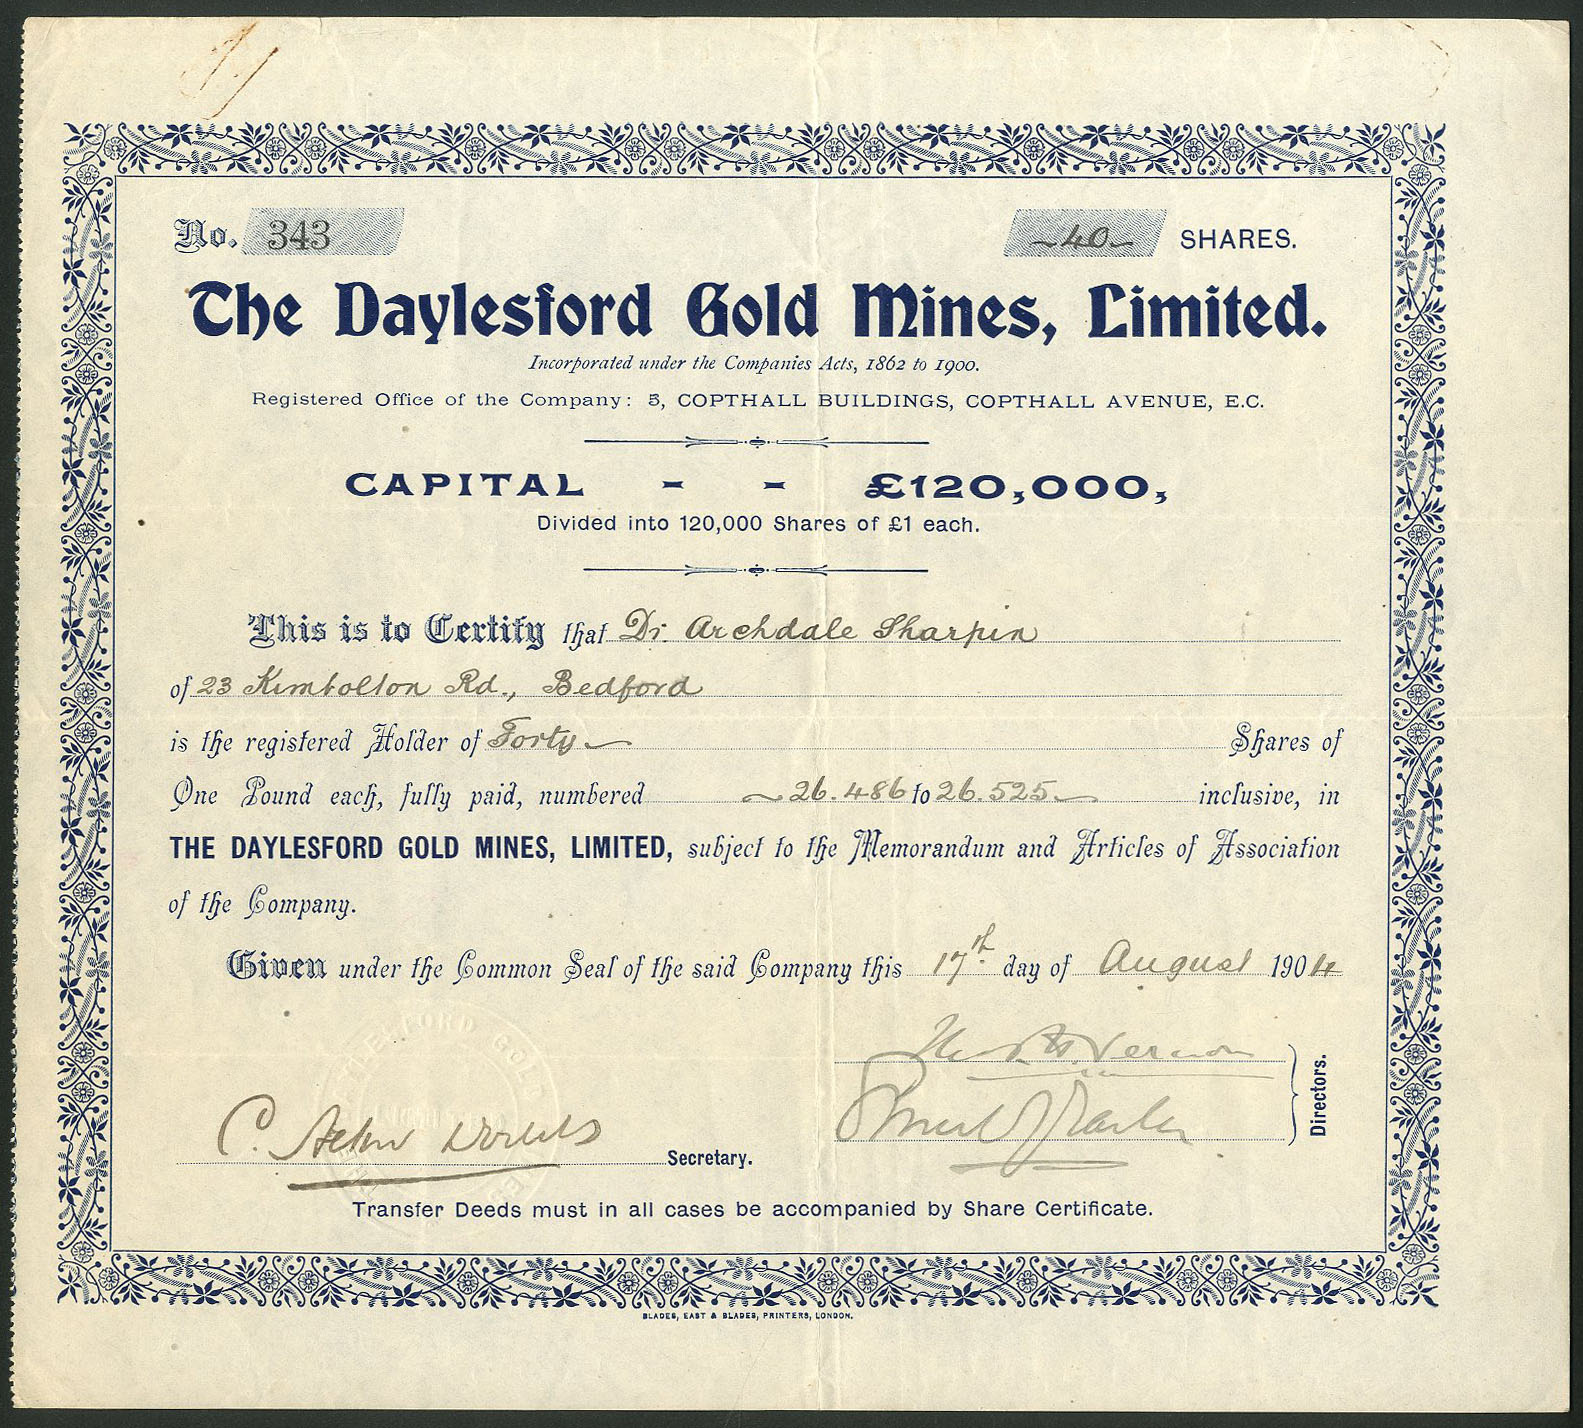 No. 343
~40~ SHARES.
The Daylesford Gold Mines, Limited.
Incorporated under the Companies Acts, 1862 to 1900.
Registered Office of the Company: 5, COPTHALL BUILDINGS, COPTHALL AVENUE, E.C.
CAPITAL - - £120,000,
Divided into 120,000 Shares of £1 each.
This is to Certify that Dr. Archdale Sharpin
of 23 Kimbolton Rd., Bedford
is the registered Holder of Forty~ Shares of
One Pound each, fully paid, numbered ~26.486 to 26.525~ inclusive, in
THE DAYLESFORD GOLD MINES, LIMITED, subject to the Memorandum and Articles of Association
of the Company.
Given under the Common Seal of the said Company this 17th day of August 1904
Vernon
Directors.
C.
Secretary.
Transfer Deeds must in all cases be accompanied by Share Certificate.
BLADES, EAST & BLADES, PRINTERS, LONDON.